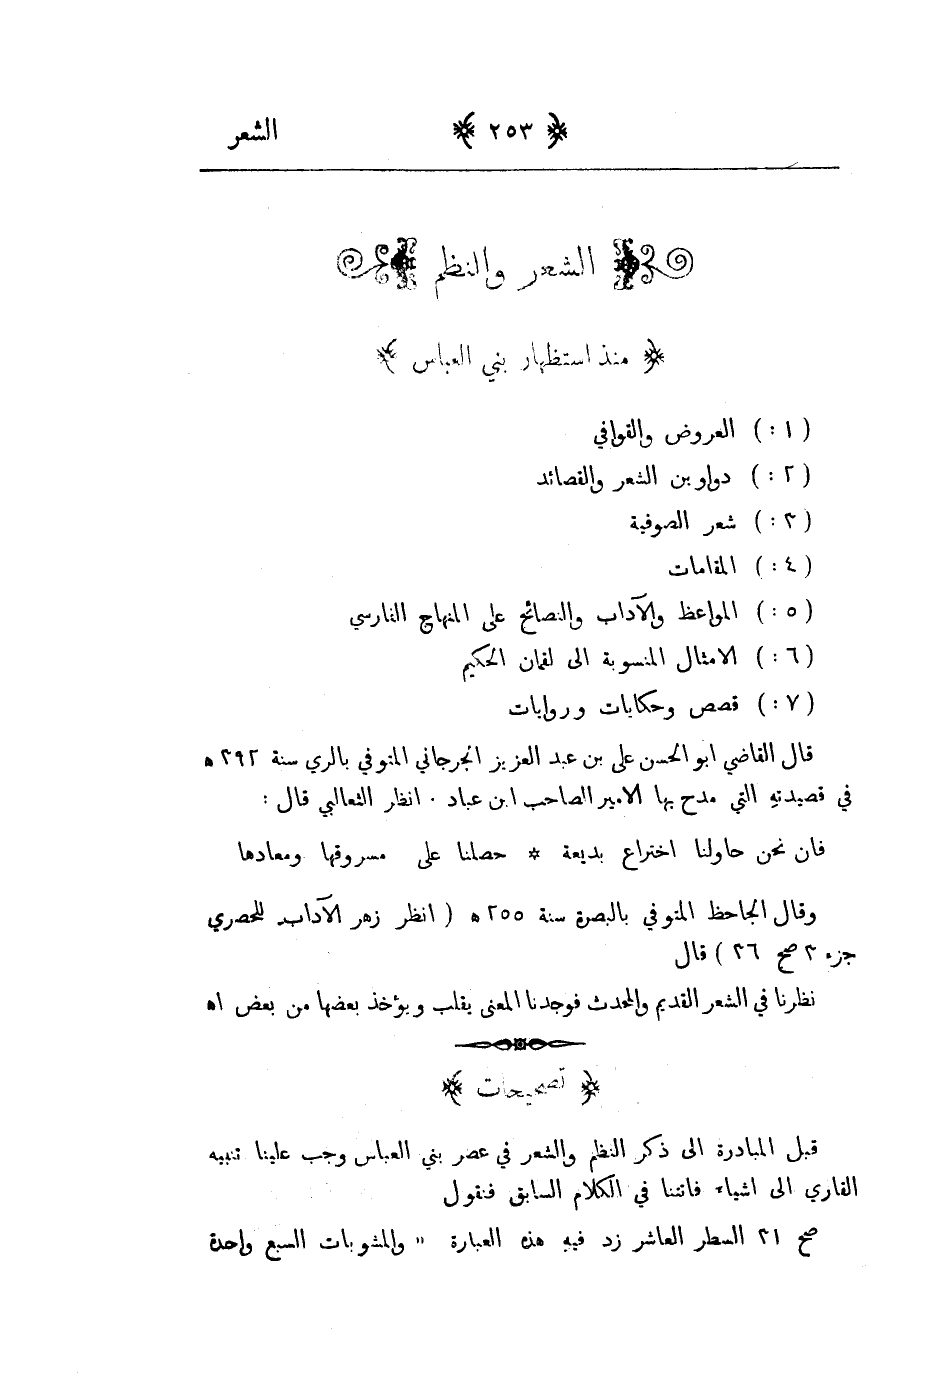 الشعر ﴿ ٢٥٣ ﴾
الشعر والنظم
﴿ منذ استظهار بني العباس ﴾
( ١ : ) العروض والقوافي
( ٢ : ) دواوين الشعر والقصائد
( ٣ : ) شعر الصوفية
( ٤ : ) المقامات
( ٥ : ) المواعظ والآداب والنصائح على المنهاج الفارسي
( ٦ : ) الامثال المنسوبة الى لقمان الحكيم
( ٧ : ) قصص وحكايات وروايات
قال القاضي ابو الحسن علي بن عبد العزيز الجرجاني المتوفي بالري سنة ٣٩٢ ه
في قصيدته التي مدح بها الامير الصاحب ابن عباد . انظر الثعالبي قال :
فان نحن حاولنا اختراع بديعة * حصلنا على مسروقها ومعادها
وقال الجاحظ المتوفي بالبصرة سنة ٢٥٥ ه ( انظر زهر الآداب للحصري
جزء ٣ صح ٣٦ ) قال
نظرنا في الشعر القديم والمحدث فوجدنا المعنى يقلب ويؤخذ بعضها من بعض اه
﴿ تصحيحات ﴾
قبل المبادرة الى ذكر النظم والشعر في عصر بني العباس وجب علينا تنبيه
القاري الى اشياء فاتتنا في الكلام السابق فنقول
صح ٣١ السطر العاشر زد فيه هذه العبارة " والمشوبات السبع واحدة